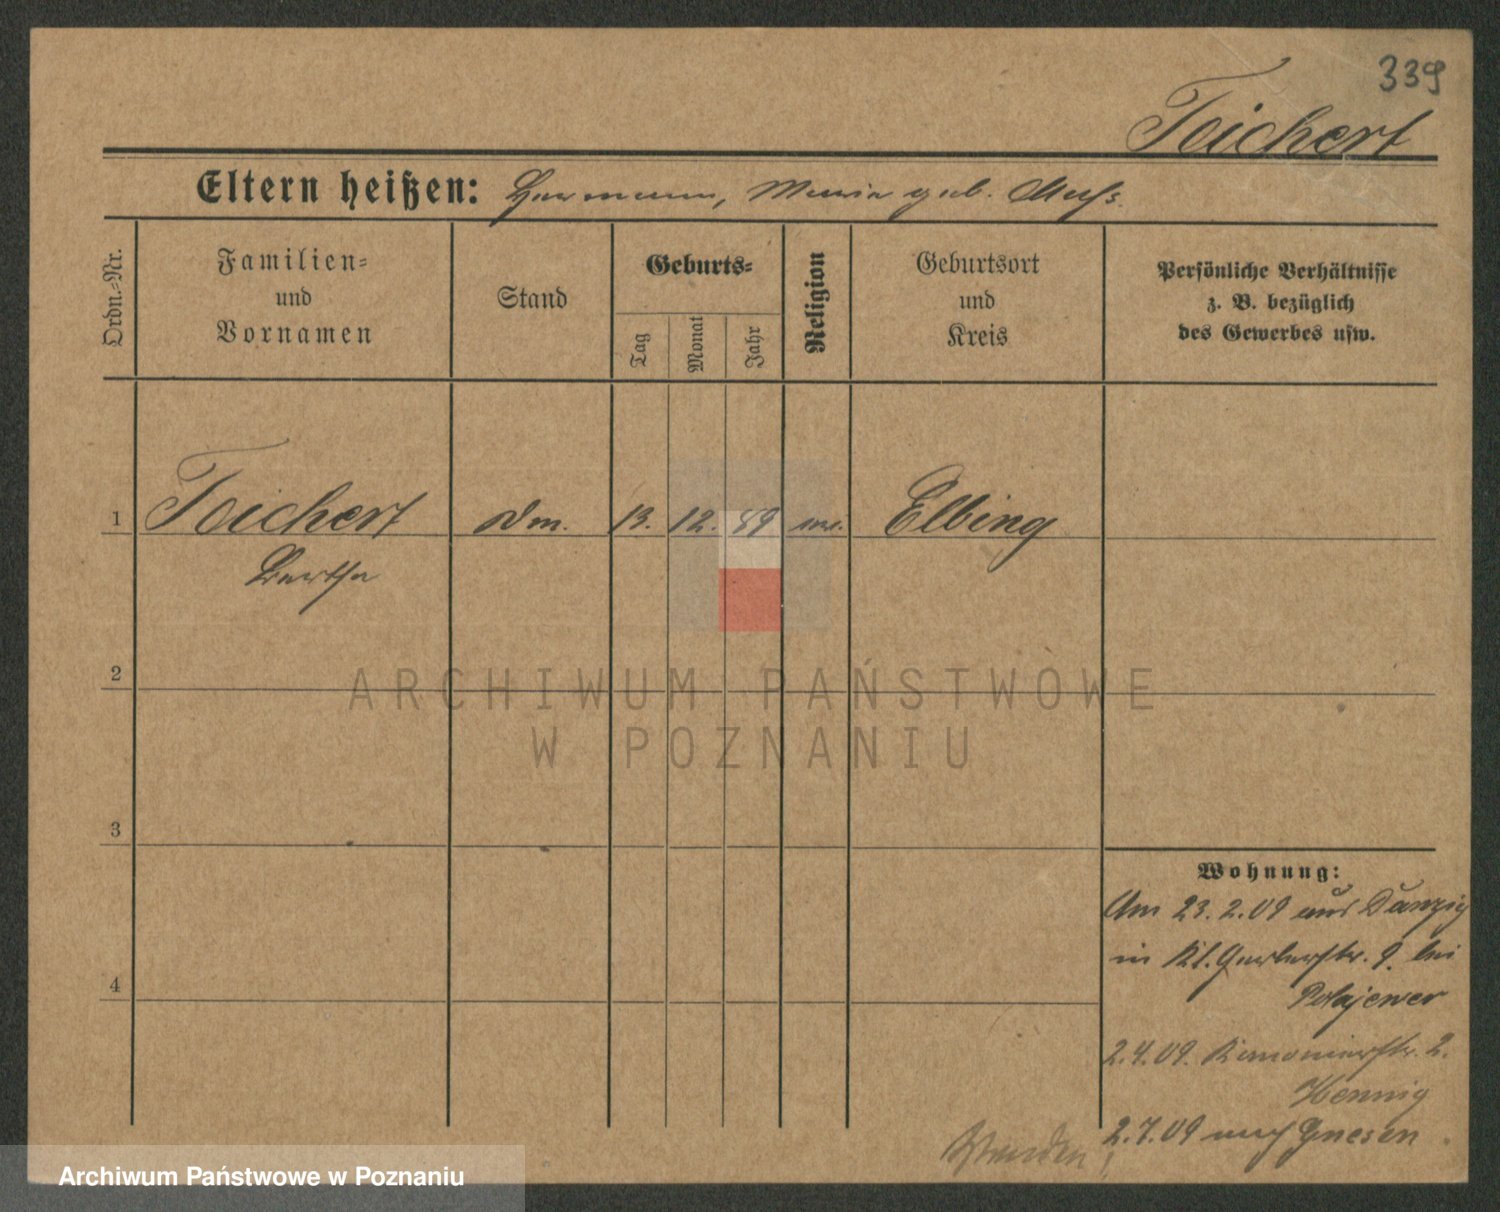 339
Teichert
Eltern heißen: Hermann, Marie geb.
Ordn.-Nr.
Familien-
und
Vornamen
Stand
Geburts-
Tag
Monat
Jahr
Religion
Geburtsort
und
Kreis
Persönliche Verhältnisse
z. B. bezüglich
des Gewerbes usw.
1 Teichert 13. 12. 89 Elbing
Bertha
2
ARCHIWUM PAŃSTWOWE
W POZNANIU
3
4
Wohnung:
Am 23.2.09 aus Danzig
in Kl. Gerberstr. 9. bei
Polajewer
2.4.09. Kanonierstr. 2.
Hennig
2.7.09 nach Gnesen
Archiwum Państwowe w Poznaniu